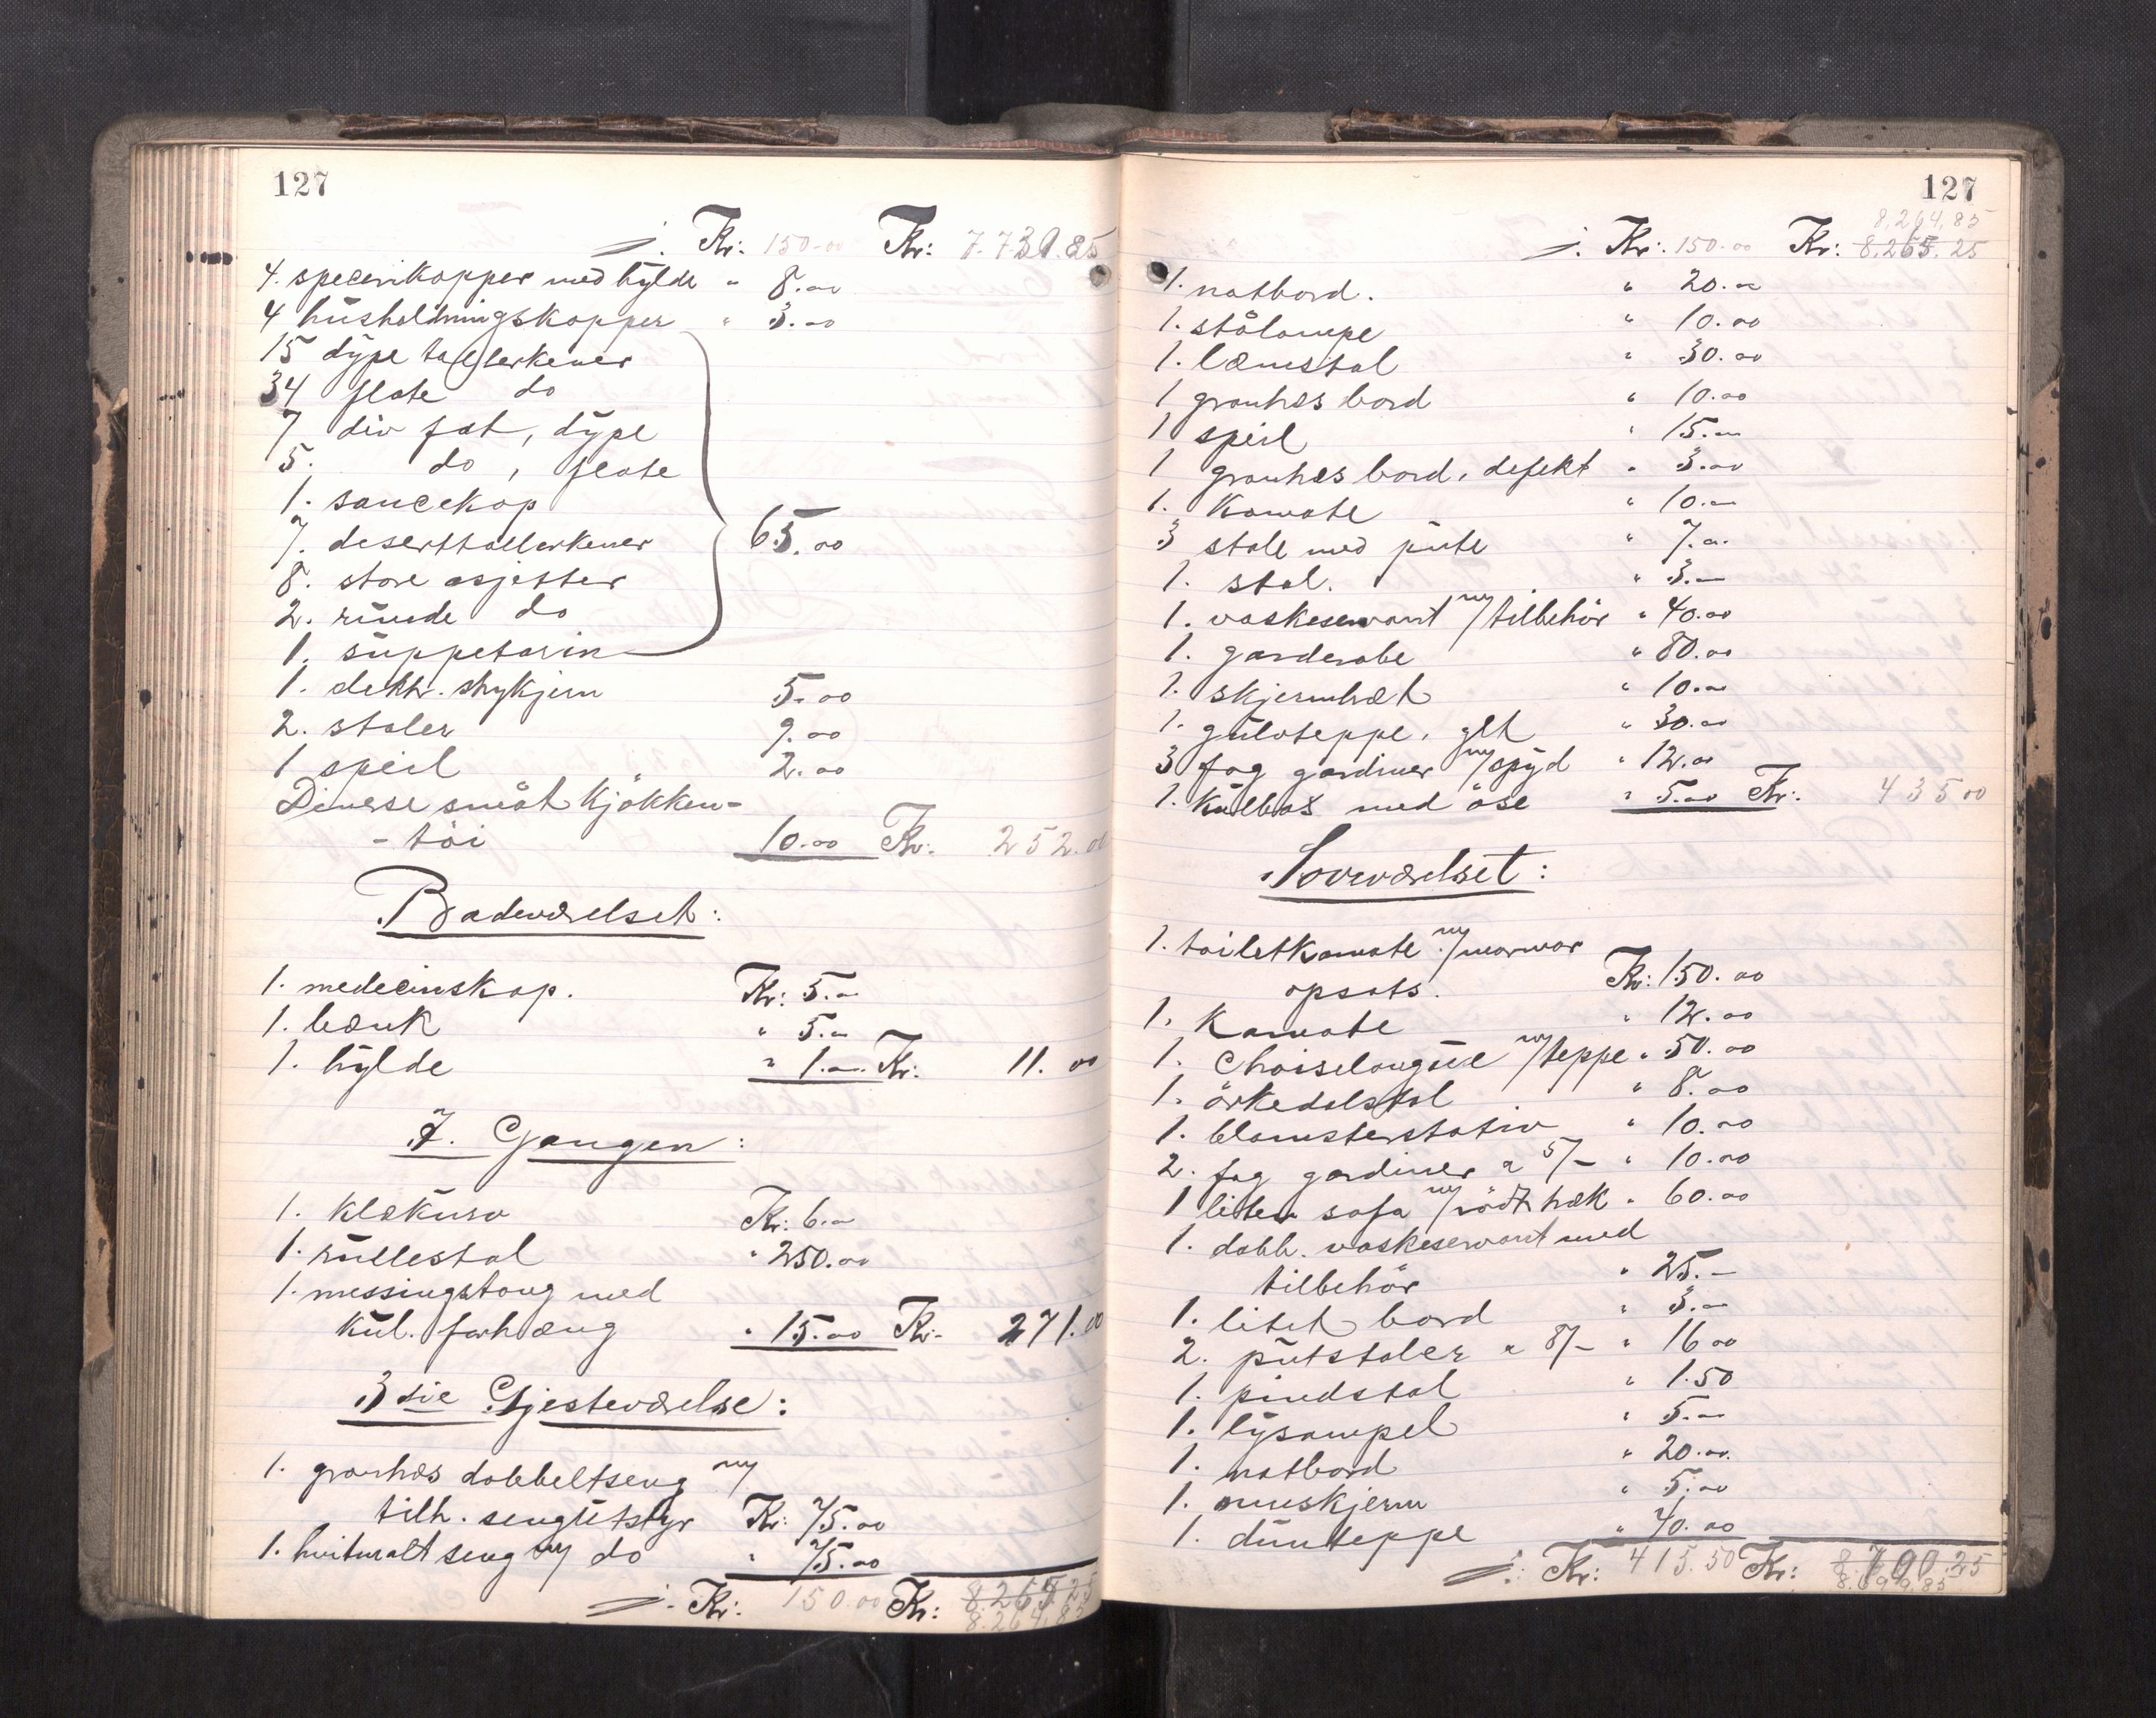 127
Kr: 150.00 Kr: 7.731.85
4. specerikopper med hylde " 8.00
4 husholdningskopper " 3.00
15 dype tallerkener
34 flate do
7 div fat, dype
5. do, flate
1. saucekop
7. deserttallerkener 65.00
8. store asjetter
2. runde do
1. suppeterin
1. elektr. strykjern 5.00
2. stoler 9.00
1 speil 2.00
Diverse småt kjøkken-
- tøi 10.00 Kr. 252.00
Badeværelset:
1. medecinskap. Kr: 5.00
1. bænk " 5.00
1. hylde " 1.00 Kr: 11.00
I. Gangen:
1. klækurv Kr: 6.00
1. rullestol " 250.00
1. messingstang med
kul. forhæng " 15.00 Kr. 271.00
3die Gjesteværelse:
1. granhæs dobbeltseng m/
tilh. sengutstyr Kr: 75.00
1. hvitmalt seng m/ do " 75.00
Kr: 150.00 Kr: 8.265.25
8.264.85
127
8.264.85
Kr: 150.00 Kr: 8.265.25
1. natbord. " 20.00
1. stålampe " 10.00
1. lænstol " 30.00
1 granhæs bord " 10.00
1 speil " 15.00
1 granhæs bord, defekt " 3.00
1. Komode " 10.00
3 stole med pute " 7.00
1. stol. " 3.00
1. vaskeservant m/tilbehör " 40.00
1. garderobe " 80.00
1. skjermbræt " 10.00
1. gulvteppe, glt " 30.00
3 fag gardiner m/spyd " 12.00
1. kulboks med öse " 5.00 Kr: 435.00
Soveværelset:
1. toiletkomode m/marmor
opsats. Kr: 150.00
1. Komode " 12.00
1. Chaiselongue m/teppe " 50.00
1. örkedalstol " 8.00
1. blomsterstativ " 10.00
2. fag gardiner a 5/- " 10.00
1 liten sofa m/rödt træk " 60.00
1. dobb. vaskeservant med
tilbehör " 25.-
1. litet bord " 3.00
2. putstoler a 8/- " 16.00
1. pindstol " 1.50
1. lysampel " 5.00
1. natbord " 20.00
1. ovnskjerm " 5.00
1. dunteppe " 40.00
Kr: 415.50 Kr: 8.700.25
8.699.85